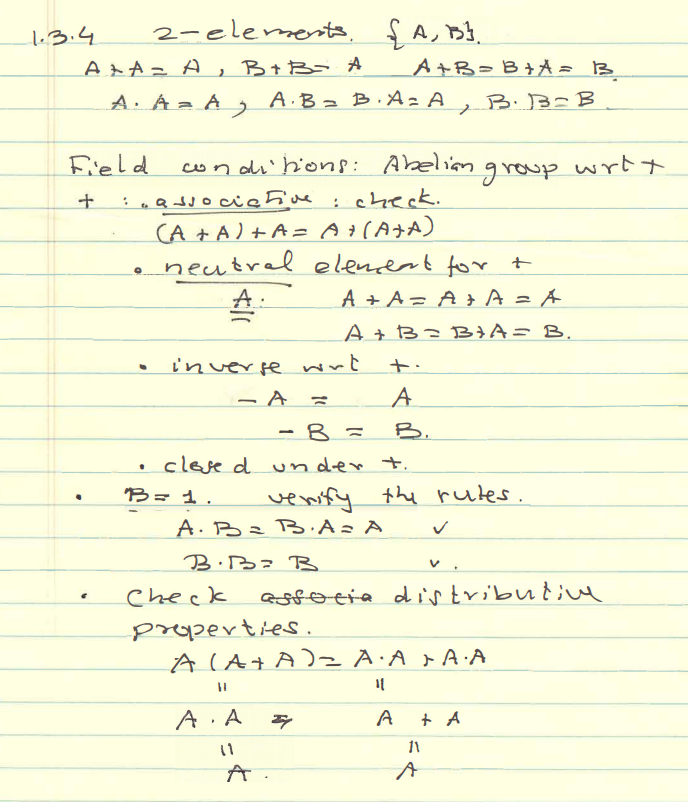 1.3.4 2-elements. {A, B}.
A+A= A, B+B= A A+B=B+A= B.
A·A=A, A·B=B·A=A, B·B=B.
Field conditions: Abelian group wrt +
+ : . associative : check.
(A+A)+A= A+(A+A)
• neutral element for +
A. A+A=A+A=A
A+B=B+A=B.
• inverse wrt +.
-A = A
-B = B.
• closed under +.
• B=1. verify the rules.
A·B=B·A=A ✓
B·B=B ✓.
• Check associa distributive
properties.
A(A+A)=A·A+A·A
॥ ॥
A·A = A + A
॥ ॥
A. A